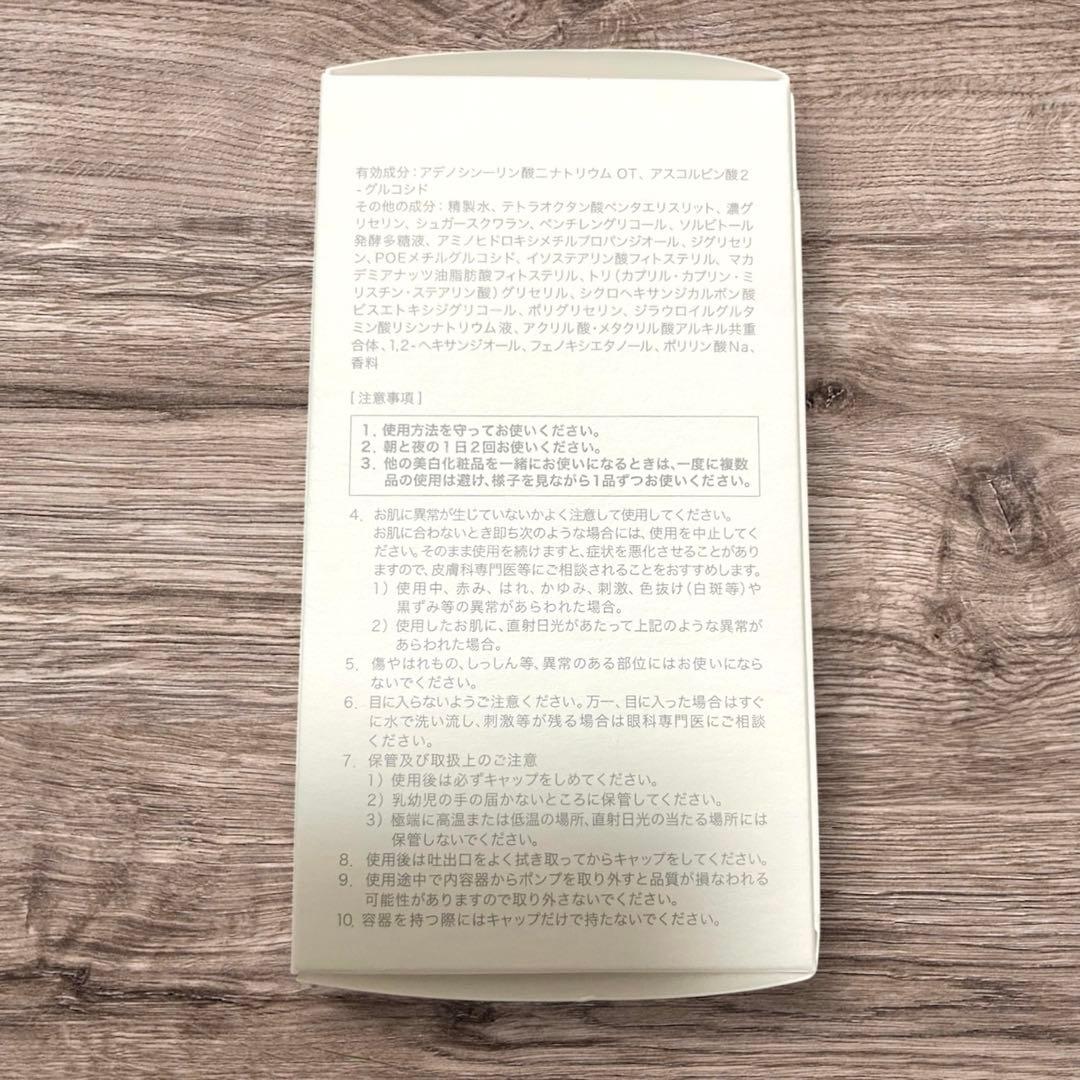 有効成分：アデノシン一リン酸二ナトリウム OT、アスコルビン酸２
-グルコシド
その他の成分：精製水、テトラオクタン酸ペンタエリスリット、濃グ
リセリン、シュガースクワラン、ペンチレングリコール、ソルビトール
発酵多糖液、アミノヒドロキシメチルプロパンジオール、ジグリセリ
ン、POEメチルグルコシド、イソステアリン酸フィトステリル、マカ
デミアナッツ油脂肪酸フィトステリル、トリ（カプリル・カプリン・ミ
リスチン・ステアリン酸）グリセリル、シクロヘキサンジカルボン酸
ビスエトキシジグリコール、ポリグリセリン、ジラウロイルグルタ
ミン酸リシンナトリウム液、アクリル酸・メタクリル酸アルキル共重
合体、1,2-ヘキサンジオール、フェノキシエタノール、ポリリン酸Na、
香料
［注意事項］
1. 使用方法を守ってお使いください。
2. 朝と夜の１日２回お使いください。
3. 他の美白化粧品を一緒にお使いになるときは、一度に複数
品の使用は避け、様子を見ながら1品ずつお使いください。
4. お肌に異常が生じていないかよく注意して使用してください。
お肌に合わないとき即ち次のような場合には、使用を中止してく
ださい。そのまま使用を続けますと、症状を悪化させることがあり
ますので、皮膚科専門医等にご相談されることをおすすめします。
1）使用中、赤み、はれ、かゆみ、刺激、色抜け（白斑等）や
黒ずみ等の異常があらわれた場合。
2）使用したお肌に、直射日光があたって上記のような異常が
あらわれた場合。
5. 傷やはれもの、しっしん等、異常のある部位にはお使いになら
ないでください。
6. 目に入らないようご注意ください。万一、目に入った場合はすぐ
に水で洗い流し、刺激等が残る場合は眼科専門医にご相談
ください。
7. 保管及び取扱上のご注意
1）使用後は必ずキャップをしめてください。
2）乳幼児の手の届かないところに保管してください。
3）極端に高温または低温の場所、直射日光の当たる場所には
保管しないでください。
8. 使用後は吐出口をよく拭き取ってからキャップをしてください。
9. 使用途中で内容器からポンプを取り外すと品質が損なわれる
可能性がありますので取り外さないでください。
10. 容器を持つ際にはキャップだけで持たないでください。